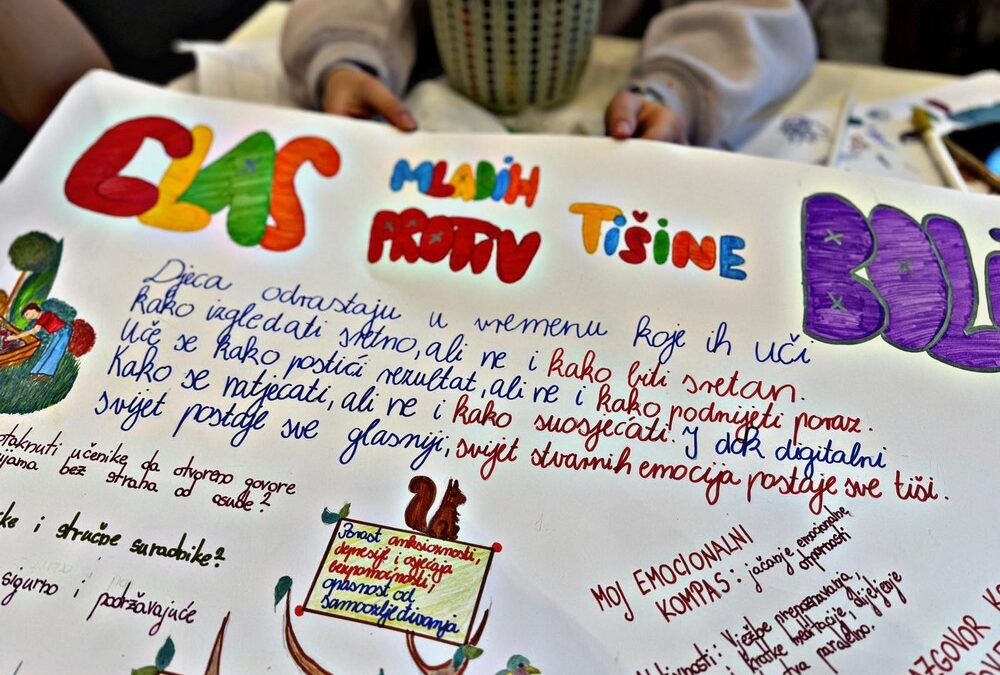 GLAS MLADIH PROTIV TIŠINE BOLI
Djeca odrastaju u vremenu koje ih uči
kako izgledati sretno, ali ne i kako biti sretan.
Uče se kako postići rezultat, ali ne i kako podnijeti poraz.
Kako se natjecati, ali ne i kako suosjećati. I dok digitalni
svijet postaje sve glasniji, svijet stvarnih emocija postaje sve tiši.
potaknuti učenike da otvoreno govore
bez straha od osude?
i stručne suradnike?
sigurno i podržavajuće
Porast anksioznosti,
depresije i osjećaja
bespomoćnosti,
opasnost od
samoozljeđivanja
MOJ EMOCIONALNI
KOMPAS: jačanje emocionalne
otpornosti
Vježbe prepoznavanja,
kratke meditacije, dijeljenje